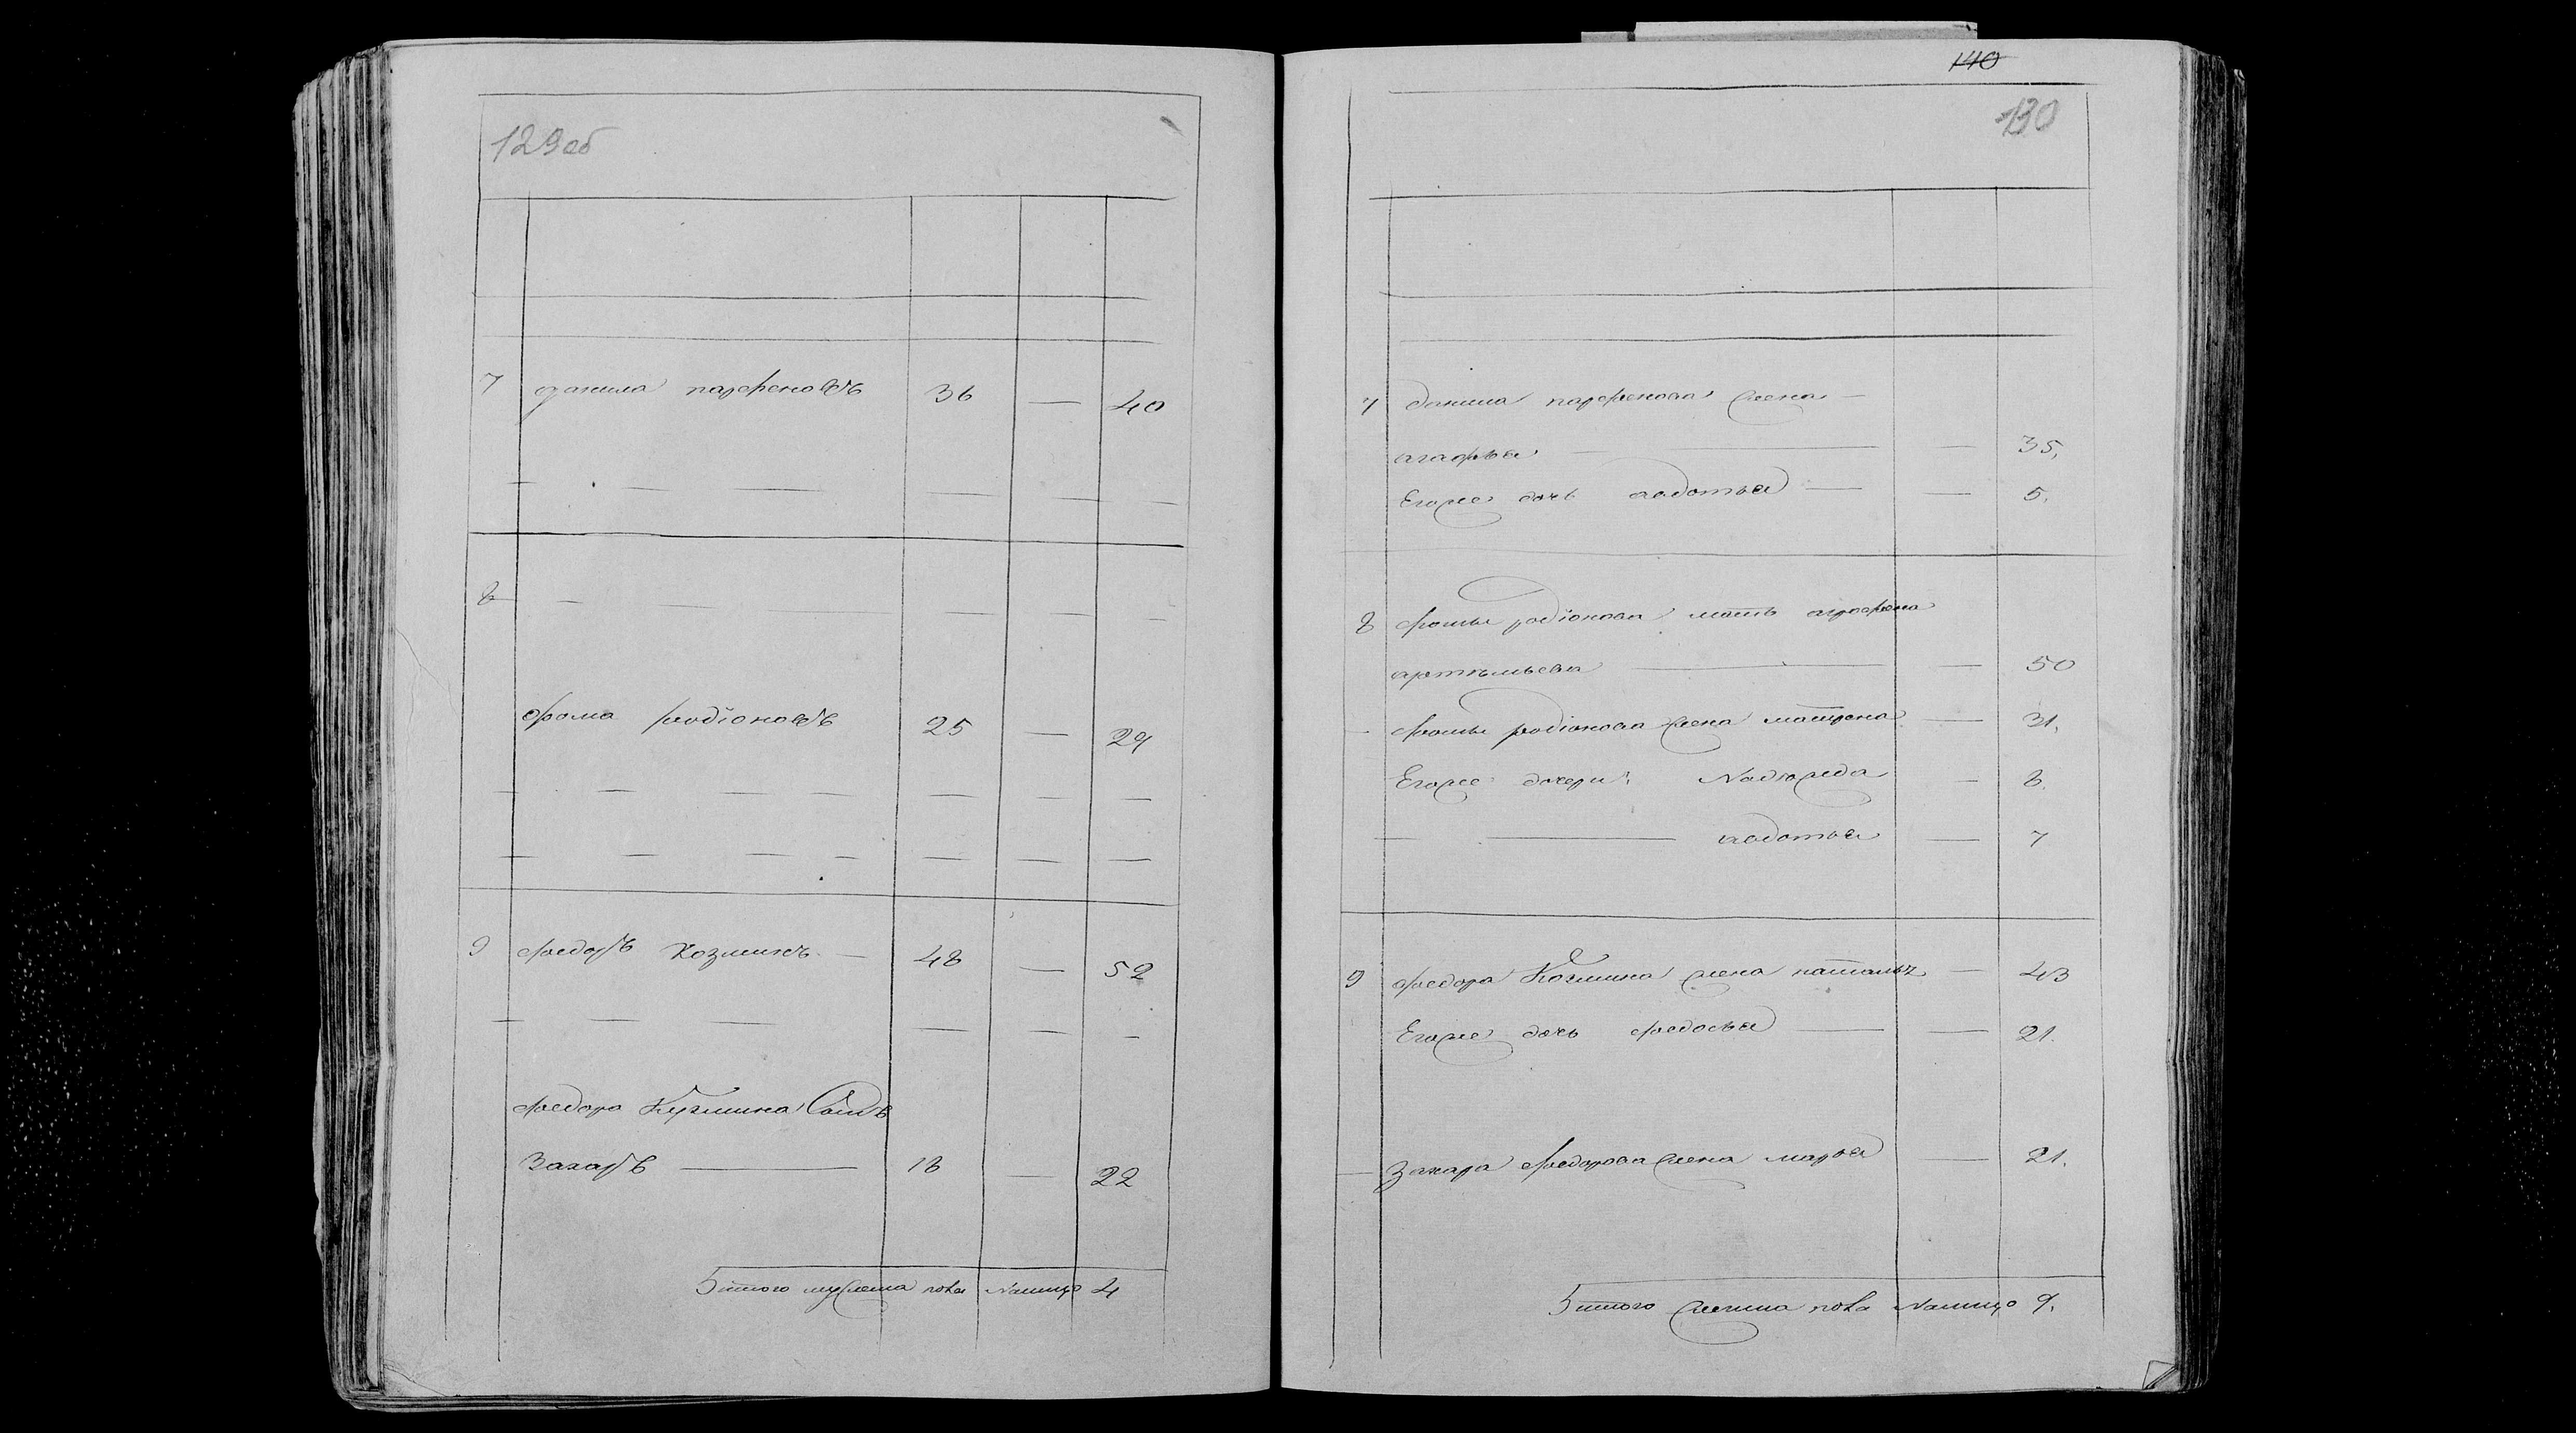 129об
7 данила парфеновъ 36 — 40
8
фома родіоновъ 25 — 29
9 федоръ Козминъ — 48 — 52
федора Кузмина Сынъ
Захаръ — 18 — 22
Итого мужеска пола Налицо 4
140
130
7 данила парфенова жена —
агафья — — 35.
Егоже дочь авдотья — — 5.
8 фомы родіонова мать аграфена
артемьева — — 50
фомы родіонова жена матрена — 31.
Егоже дочери: Надежда — 8.
авдотья — 7
9 федора Козмина жена наталья — 43
Егоже дочь федосья — — 21.
Захара федорова жена марья — 21.
Итого женска пола Налицо 9.